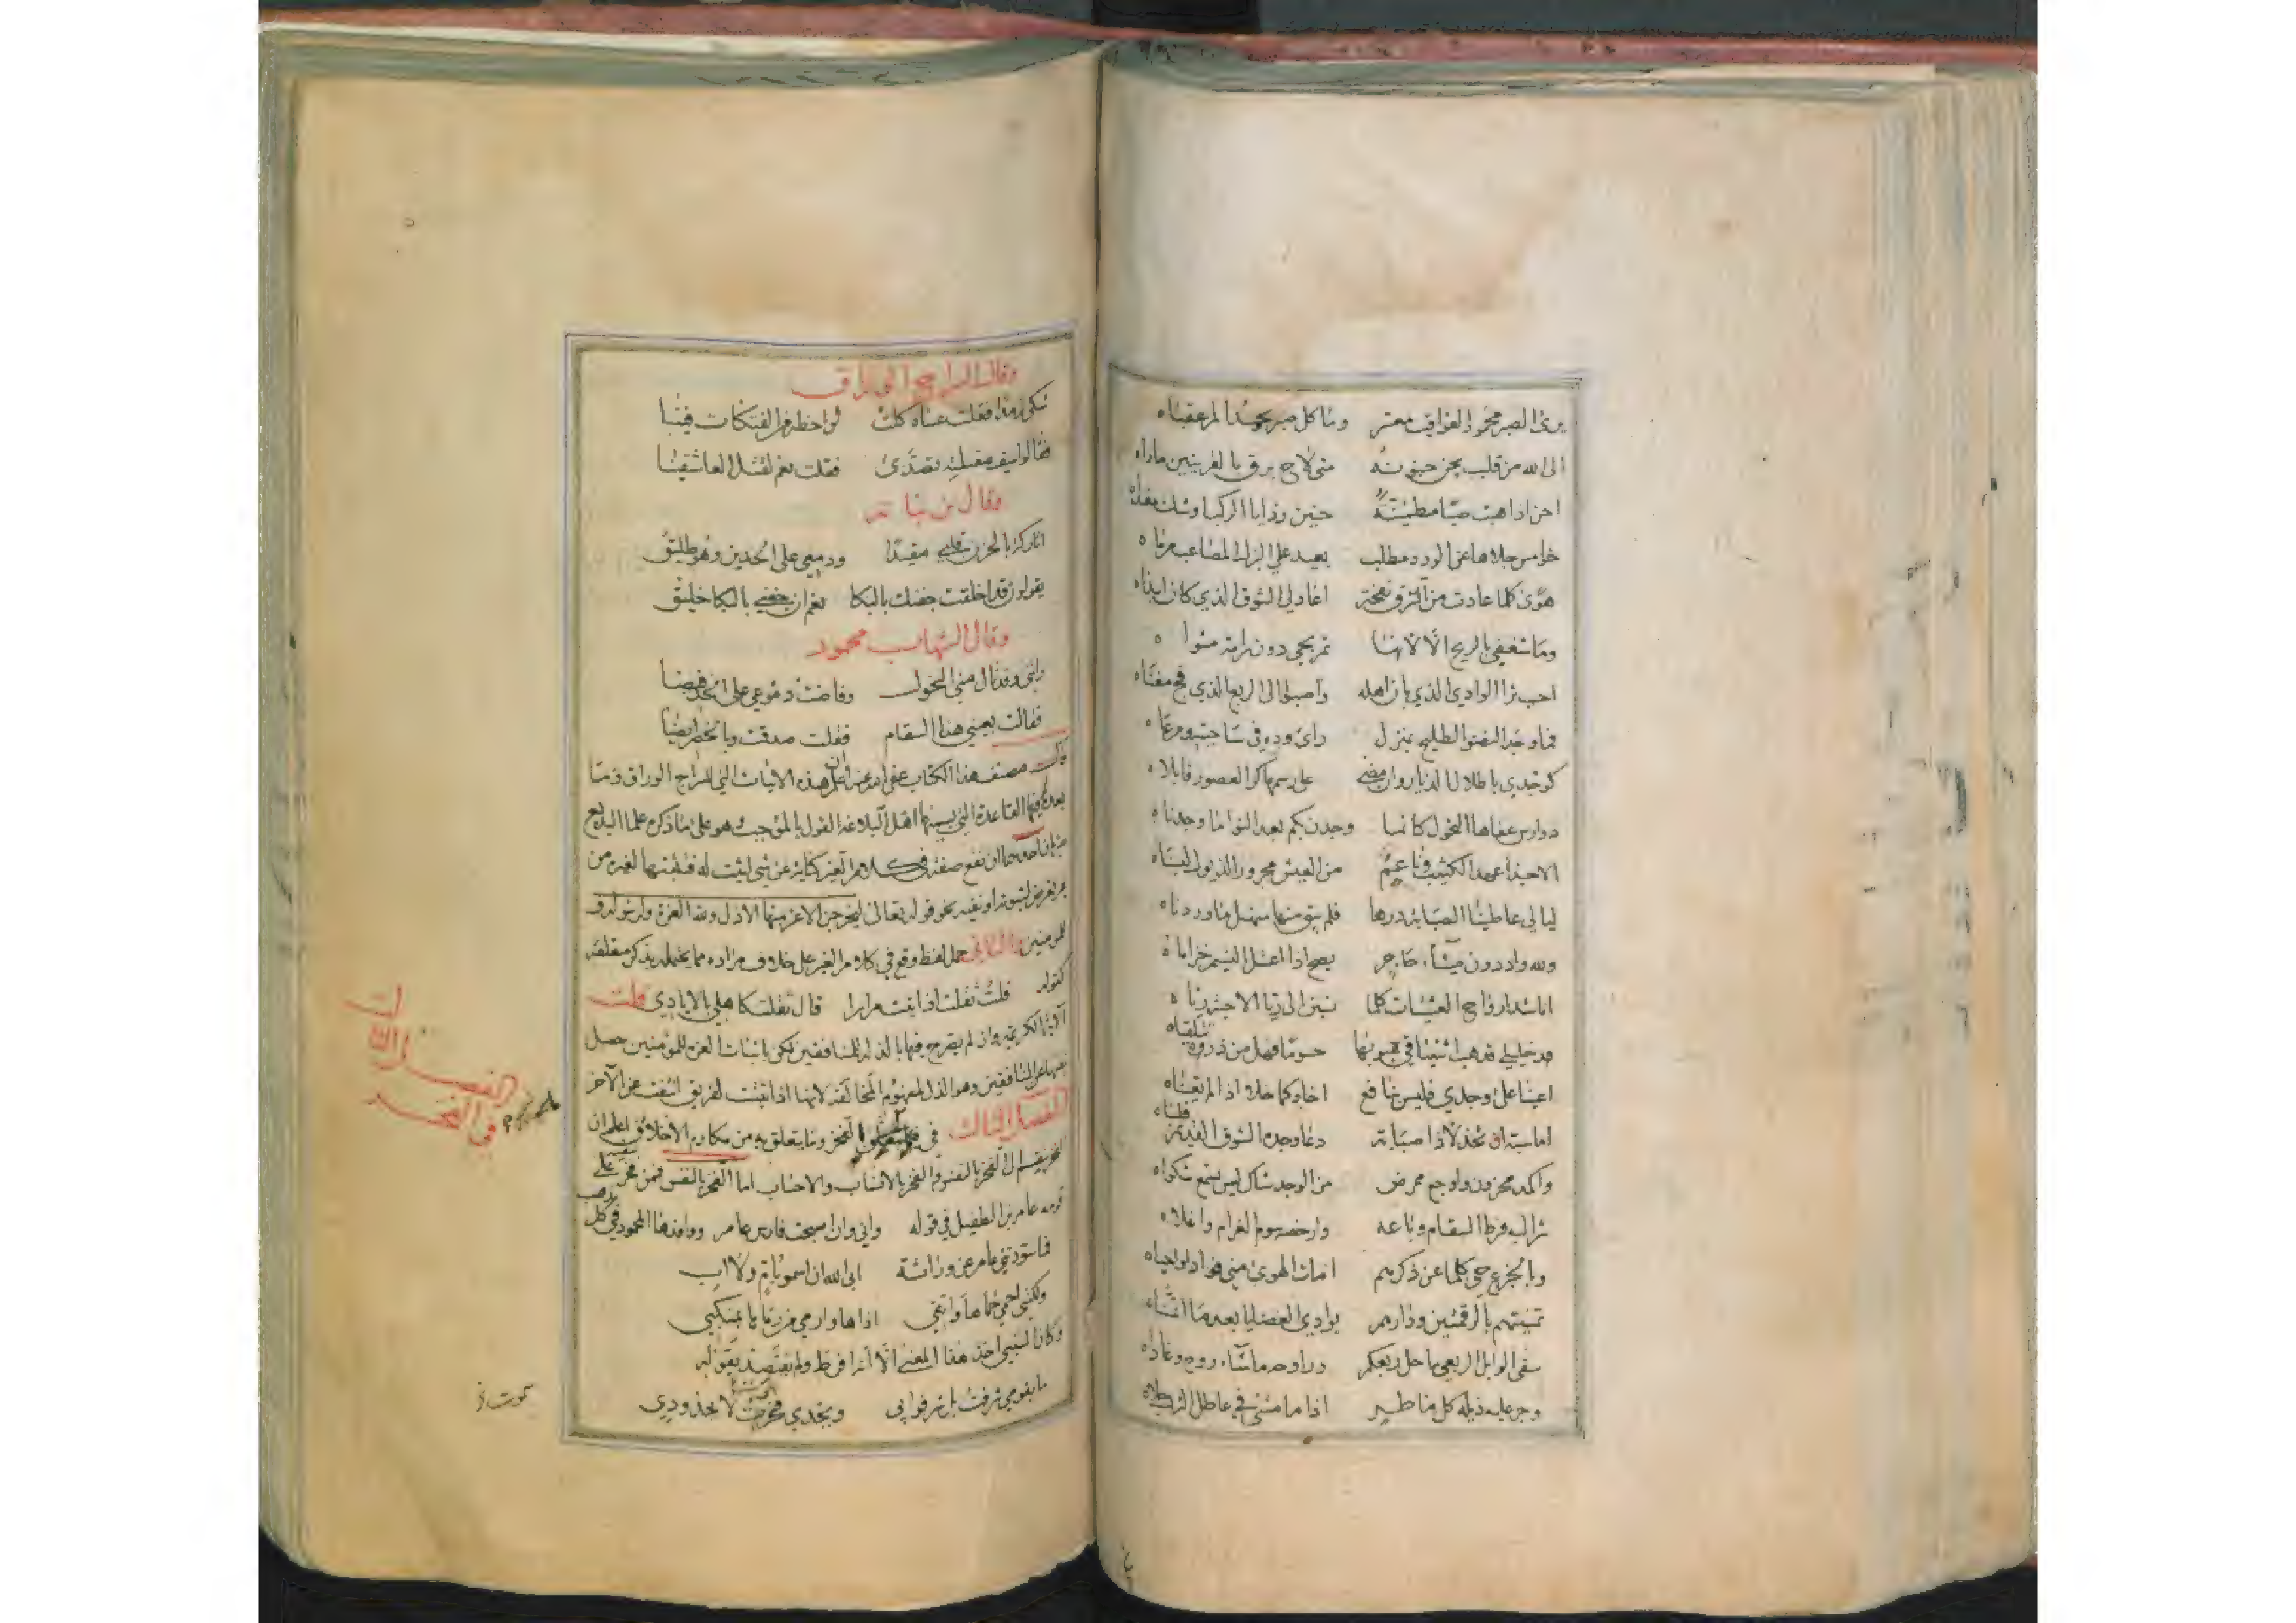 يرى الصبر محمود العواقب معشر وما كل صبر يحمد المرء عقباه
الى الله من قلب يجن جنونه متى لاح برق بالغرينين مأواه
احن اذا هبت صبا مطمئنة حنين رذايا الركب اوشك مغداه
خوامس جلاها عن الورد مطلب بعيد على البزل المصاعب مرماه
هوى كلما عادت من الشرق نفحة اعاد لي الشوق الذي كان ابداه
وما شغفي بالريح الا لانها تمر بحي دون رامة مثواه
احب ثرا الوادي الذي بان اهله واصبوا الى الربع الذي مح مغناه
فما وجد النضو الطليح بمنزل راى ورده في ساحتيه ومرعاه
كوجدي باطلال الديار وان مضى على رسمها كر العصور فابلاه
دوارس عفاها النحول كانما وجدن بكم بعد النوا ما وجدناه
الا حبذا عهد الكثيب وناعم من العيش مجرور الذيول لبسناه
ليالي عاطينا الصبابة درها فلم يبق منها منهل ما وردناه
ولله واد دون ميثاء حاجر يصح اذا اعتل النسيم خزاماه
اناشد ارواح العشيات كلما نسبن الى ريا الاحبة رياه
خليلي قد هب اشتياقي هبوبها حسوما فهل من ذروة نتلقاه
اعينا على وجدي فليس بنافع اخاكما خلا اذا لم يعناه
اما سبة ان تخذلا ذا صبابة دعا وجده الشوق القديم
واكمد محزون واوجع ممرض من الوجد شاك ليس تسمع شكواه
شرا لب فرط السقام وباعه وارخصه سوم الغرام واغلاه
وبالجزع حي كلما عن ذكرهم امات الهوى مني فوادا واحياه
تمنيتهم بالرقمتين ودارهم بوادي الغضا يا بعد ما اتمناه
سقى الوابل الربعي ماحل ربعكم وراوحه ماشاء روح وغاداه
وجر عليه ذيله كل ماطر اذا ما مشى في عاطل الترب حلاه
وقال السراج الوراق
شكى رمدا فقلت عساه كلت لواحظه من الفتكات فينا
فقالوا سيف مقلته تصدى فقلت نعم لقتل العاشقينا
وقال ابن نباتة
اتاركة بالحزن قلبي مقيدا ودمعي على الخدين وهو طليق
يقولون قد اخلقت جفنك بالبكا نعم ان جفني بالبكا خليق
وقال الشهاب محمود
راتني وقد نال مني النحول وفاضت دموعي على الخد فيضا
فقالت بعيني هذا السقام فقلت صدقت وبالخصر ايضا
قال مصنف هذا الكتاب عفي الله عنه اعلم ان هذه الابيات التي للسراج الوراق وما
بعده فيها القاعدة التي يسميها اهل البلاغة القول بالموجب وهو على ما ذكره علماء البديع
ضربان احدهما ان تقع صفة في كلام الغير كناية عن شي اثبت له فتثبتها لغيره من
غير تعرض لثبوته او نفيه نحو قوله تعالى ليخرجن الاعز منها الاذل ولله العزة ولرسوله و
للمومنين والثاني حمل لفظ وقع في كلام الغير على خلاف مراده مما يحتمله بذكر متعلقه
كقوله قلت ثقلت اذ اتيت مرارا قال ثقلت كاهلي بالايادي قلت
الاية الكريمة وان لم يصرح فيها بالذلة للمنافقين لكن باثبات العزة للمؤمنين حصل
نفيها عن المنافقين وهو الذل لمفهوم المخالفة لانها اذا ثبتت لفريق انتفت عن الآخر
الفصل الثالث في الفخر وما يتعلق به من مكارم الاخلاق اعلم ان
الفخر ينقسم الى الفخر بالنفس والفخر بالانساب والاحساب اما الفخر بالنفس فمن فخر بنفسه على
قومه عامر بن الطفيل في قوله واني وان اصبحت فارس عامر ووافدها المحمود في كل موكب
فما سودتني عامر عن وراثة ابى الله ان اسمو بام ولا اب
ولكنني احمي حماها واتقي اذاها وارمي من رماها بمنكبي
وكان المتنبي اخذ هذا المعنى الا انه افرط ولم يقتصد بقوله
ما بقومي شرفت بل شرفوا بي وبجدي فخرت لا بجدودي
الفصل الثالث
في الفخر